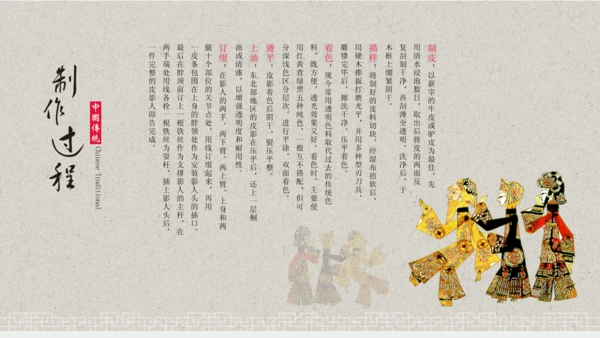 制皮：以新宰的牛皮或驴皮为最佳，先
用清水浸泡数日，取出后将皮的两面反
复刮制干净，再刮薄至透明，洗净后，于
木框上绷紧阴干。
描样：将制好的皮料切块，经湿布捂软后，
用硬木推板打磨光平，并用多种型刃刀具，
雕镂完毕后，擦洗干净，压平着色。
着色：现今常用透明色料取代过去的传统色
料，既方便，透光效果又好。着色时，主要使
用红黄青绿黑五种纯色，一般互不搭配，但可
分深浅色区分层次，进行平涂，双面着色。
熨平：皮影着色后阴干，熨压平整。
上油：东北部地区的皮影在压平后，还上一层桐
油或清漆，以增强透明度和耐用性。
订缀：在影人的两手，两下臂，两上臂，上身和两
腿十个部位的关节点处，用线订缀起来，再用
一皮条包围在上身的脖领处作为安装影人头的插口。
最后在脖颈前订上一根铁丝作为支撑影人的主杆，在
两手端处用线各栓一根铁丝为耍杆，插上影人头后，
一件完整的皮影人即告完成。
制作过程
中國傳統
Chinese Traditional